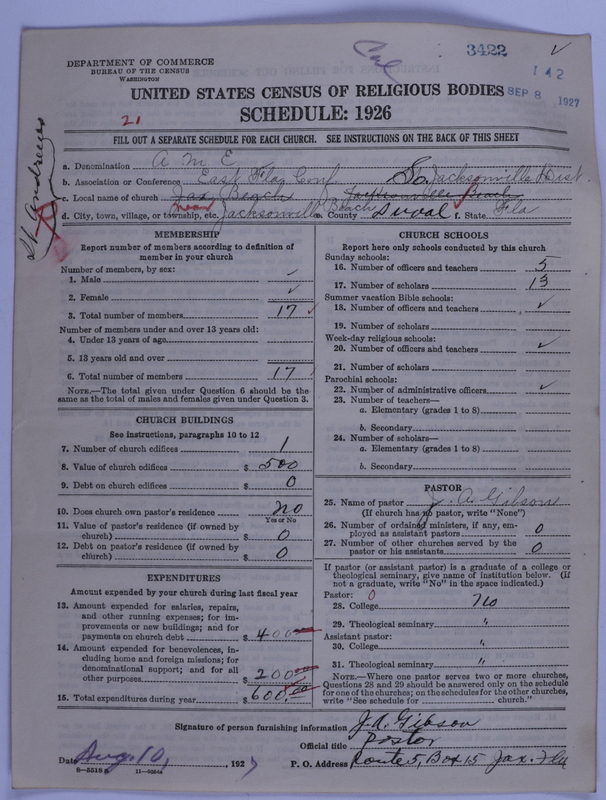 Col
3422
✓
142
DEPARTMENT OF COMMERCE
BUREAU OF THE CENSUS
WASHINGTON
UNITED STATES CENSUS OF RELIGIOUS BODIES
SEP 8 1927
SCHEDULE: 1926
21
FILL OUT A SEPARATE SCHEDULE FOR EACH CHURCH. SEE INSTRUCTIONS ON THE BACK OF THIS SHEET
St Andrews
a. Denomination A M E
b. Association or Conference East Fla Conf So Jacksonville Dist.
c. Local name of church Jax Beach Jacksonville Beach
d. City, town, village, or township, etc. near Jacksonville Beach e. County Duval f. State Fla
MEMBERSHIP
Report number of members according to definition of member in your church
Number of members, by sex:
1. Male ✓
2. Female ✓
3. Total number of members 17 ✓
Number of members under and over 13 years old:
4. Under 13 years of age
5. 13 years old and over
6. Total number of members 17
NOTE.—The total given under Question 6 should be the
same as the total of males and females given under Question 3.
CHURCH BUILDINGS
See instructions, paragraphs 10 to 12
7. Number of church edifices 1
8. Value of church edifices $ 500
9. Debt on church edifices $ 0
10. Does church own pastor's residence? no
Yes or No
11. Value of pastor's residence (if owned by
church) $ 0
12. Debt on pastor's residence (if owned by
church) $ 0
EXPENDITURES
Amount expended by your church during last fiscal year
13. Amount expended for salaries, repairs,
and other running expenses; for im-
provements or new buildings; and for
payments on church debt $ 400
14. Amount expended for benevolences, in-
cluding home and foreign missions; for
denominational support; and for all
other purposes $ 200.00
15. Total expenditures during year $ 600.00
CHURCH SCHOOLS
Report here only schools conducted by this church
Sunday schools:
16. Number of officers and teachers 5
17. Number of scholars 13
Summer vacation Bible schools:
18. Number of officers and teachers ✓
19. Number of scholars
Week-day religious schools:
20. Number of officers and teachers ✓
21. Number of scholars
Parochial schools:
22. Number of administrative officers ✓
23. Number of teachers—
a. Elementary (grades 1 to 8)
b. Secondary
24. Number of scholars—
a. Elementary (grades 1 to 8)
b. Secondary
PASTOR
25. Name of pastor J. A. Gibson
(If church has no pastor, write "None")
26. Number of ordained ministers, if any, em-
ployed as assistant pastors 0
27. Number of other churches served by the
pastor or his assistants 0
If pastor (or assistant pastor) is a graduate of a college or
theological seminary, give name of institution below. (If
not a graduate, write "No" in the space indicated.)
Pastor: 0
28. College No
29. Theological seminary "
Assistant pastor:
30. College "
31. Theological seminary "
NOTE.—Where one pastor serves two or more churches,
Questions 28 and 29 should be answered only on the schedule
for one of the churches; on the schedules for the other churches,
write "See schedule for church."
Signature of person furnishing information J. A. Gibson
Official title Pastor
Date Aug. 10, 1927 P. O. Address Route 5, Box 15 Jax. Fla